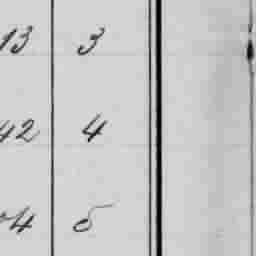 13 3
42 4
04 5